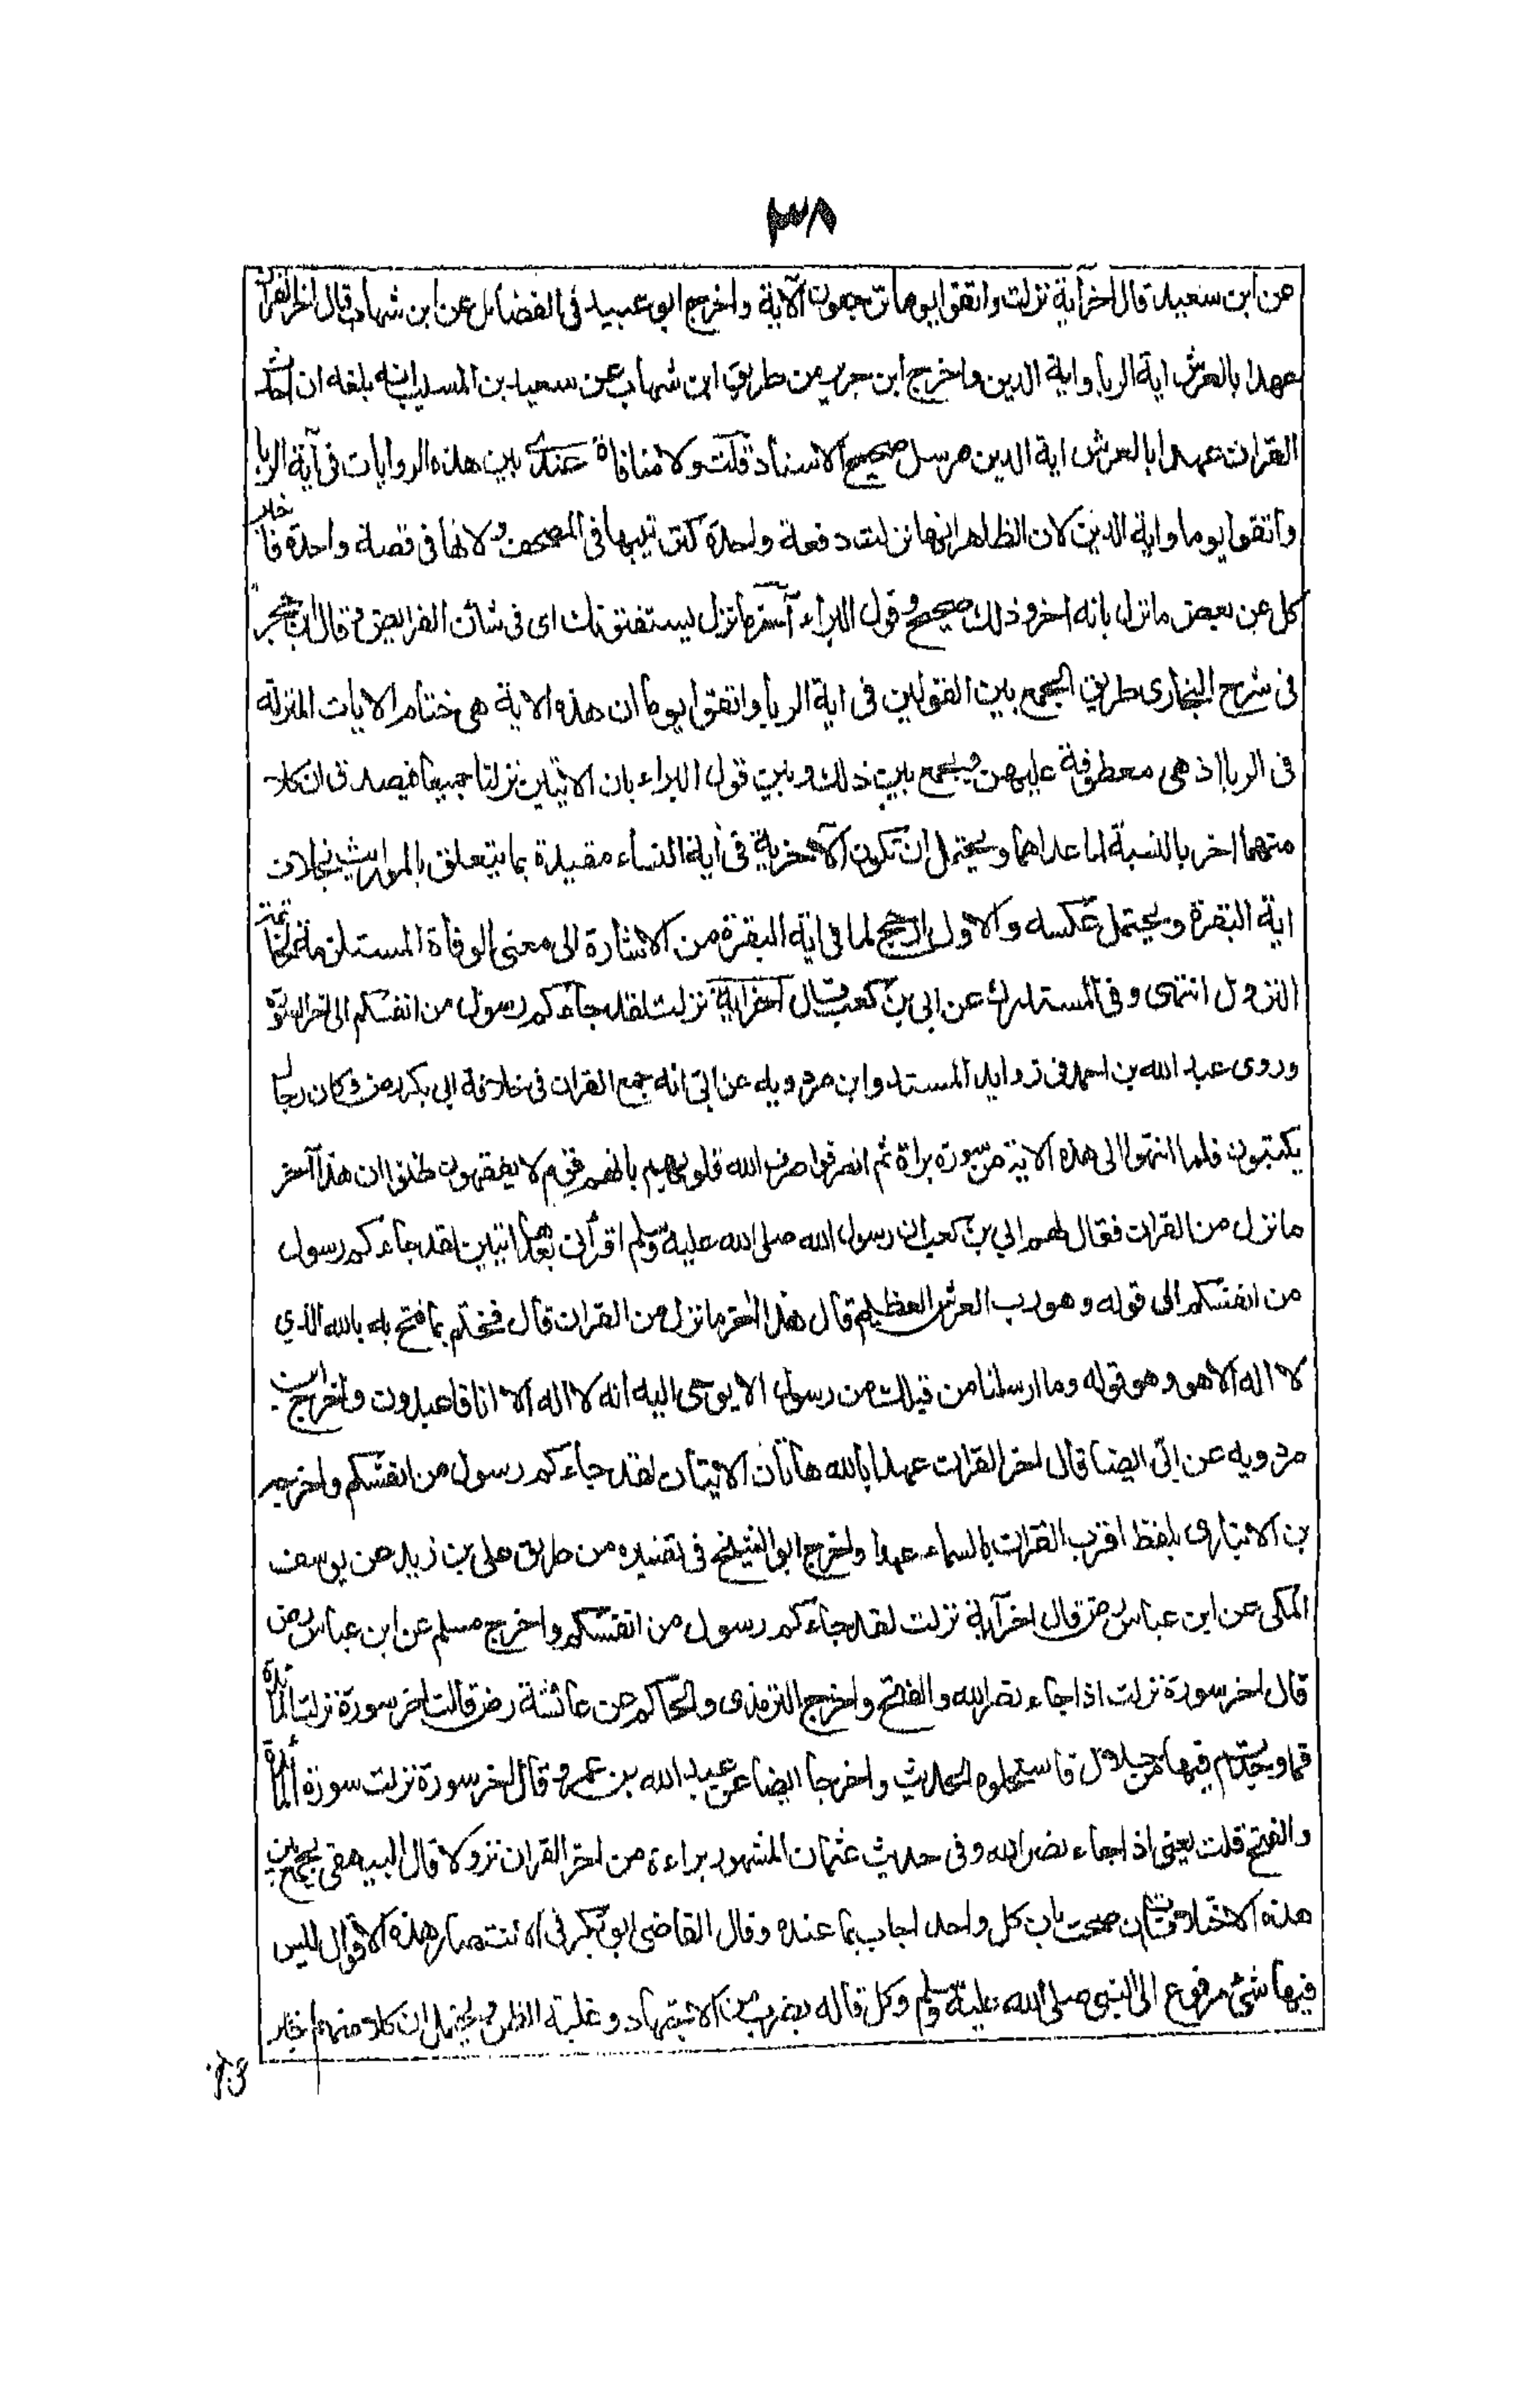 ٣٨
عن ابن سعيد قال اخر آية نزلت واتقوا يوما ترجعون الآية واخرج ابو عبيد فى الفضائل عن ابن شهاب قال اخر القرآن
عهدا بالعرش اية الربا واية الدين واخرج ابن جرير من طريق ابن شهاب عن سعيد بن المسيب انه بلغه ان احدث
القران عهدا بالعرش اية الدين مرسل صحيح الاسناد قلت ولا منافاة عندى بين هذه الروايات فى آية الربا
واتقوا يوما واية الدين لان الظاهر انها نزلت دفعة واحدة كترتيبها فى المصحف ولانها فى قصة واحدة فاخبر
كل عن بعض ما نزل بانه اخر وذلك صحيح وقول البراء آخر ما نزل يستفتونك اى فى شان الفرايض وقال ابن حجر
فى شرح البخارى طريق الجمع بين القولين فى اية الربا واتقوا يوما ان هذه الاية هى ختام الايات المنزلة
فى الربا اذ هى معطوفة عليهن ويجمع بين ذلك وبين قول البراء بان الايتين نزلتا جميعا فيصدق ان كلا
منهما اخر بالنسبة لما عداهما ويحتمل ان تكون الآخرية فى اية النساء مقيدة بما يتعلق بالمواريث بخلاف
اية البقرة ويحتمل عكسه والاول ارجح لما فى اية البقرة من الاشارة الى معنى الوفاة المستلزمة لخاتمة
النزول انتهى وفى المستدرك عن ابي بن كعب قال آخر اية نزلت لقد جاءكم رسول من انفسكم الى اخر السورة
وروى عبد الله بن احمد فى زوايد المسند وابن مردويه عن ابي انه جمع القران فى خلافة ابي بكر رض وكان رجال
يكتبون فلما انتهوا الى هذه الاية من سورة براة ثم انصرفوا صرف الله قلوبهم بانهم قوم لا يفقهون ظنوا ان هذا آخر
ما نزل من القران فقال لهم ابي بن كعب ان رسول الله صلى الله عليه وسلم اقرأنى بعدها ايتين لقد جاءكم رسول
من انفسكم الى قوله وهو رب العرش العظيم قال هذا اخر ما نزل من القران قال فختم بما فتح به بالله الذي
لا اله الا هو وهو قوله وما ارسلنا من قبلك من رسول الا يوحى اليه انه لا اله الا انا فاعبدون واخرج ابن
مردويه عن ابي ايضا قال اخر القران عهدا بالله هاتان الايتان لقد جاءكم رسول من انفسكم واخرجه
بن الانبارى بلفظ اقرب القران بالسماء عهدا واخرج ابو الشيخ فى تفسيره من طريق على بن زيد عن يوسف
المكى عن ابن عباس رض قال اخر آية نزلت لقد جاءكم رسول من انفسكم واخرج مسلم عن ابن عباس رض
قال اخر سورة نزلت اذا جاء نصر الله والفتح واخرج الترمذى والحاكم عن عائشة رض قالت اخر سورة نزلت المائدة
فما وجدتم فيها من حلال فاستحلوه الحديث واخرجا ايضا عن عبد الله بن عمرو قال اخر سورة نزلت سورة المائدة
والفتح قلت يعنى اذا جاء نصر الله وفى حديث عثمان المشهور براءة من اخر القران نزولا قال البيهقى يجمع بين
هذه الاختلافات ان صحت بان كل واحد اجاب بما عنده وقال القاضى ابو بكر فى الانتصار هذه الاقوال ليس
فيها شئ مرفوع الى النبى صلى الله عليه وسلم وكل قاله بضرب من الاجتهاد وغلبة الظن ويحتمل ان كلا منهم اخبر